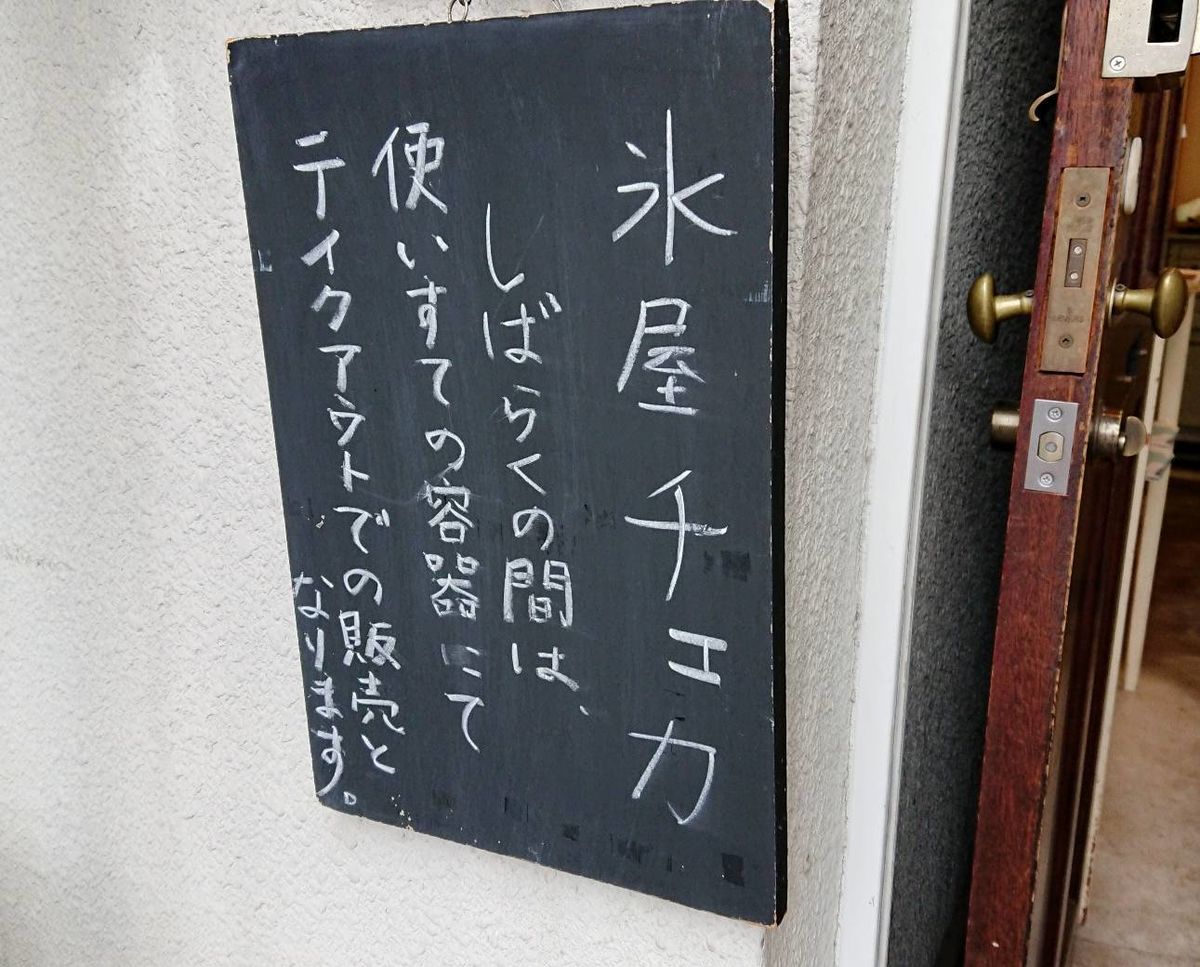 氷屋チエカ
しばらくの間は、
便いすての容器にて
テイクアウトでの販売と
なります。